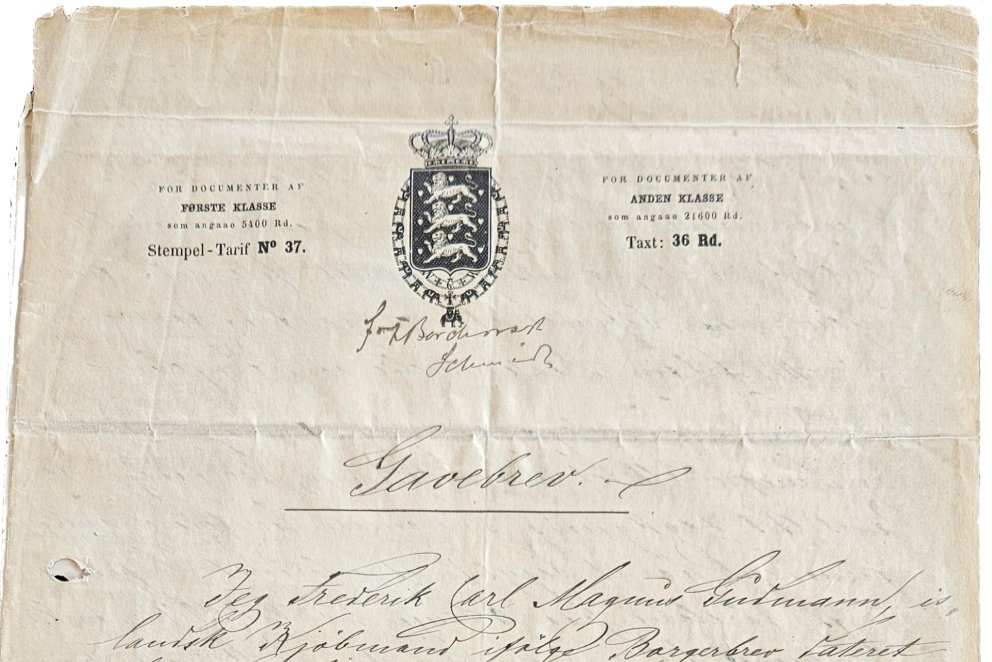 FOR DOCUMENTER AF
FØRSTE KLASSE
som angaae 5400 Rd.
Stempel-Tarif Nº 37.
FOR DOCUMENTER AF
ANDEN KLASSE
som angaae 21600 Rd.
Taxt: 36 Rd.
Schmidt
Gavebrev.
Jeg Frederik Carl Magnus Gudmann, is-
landsk Kjöbmand ifölge Borgerbrev dateret